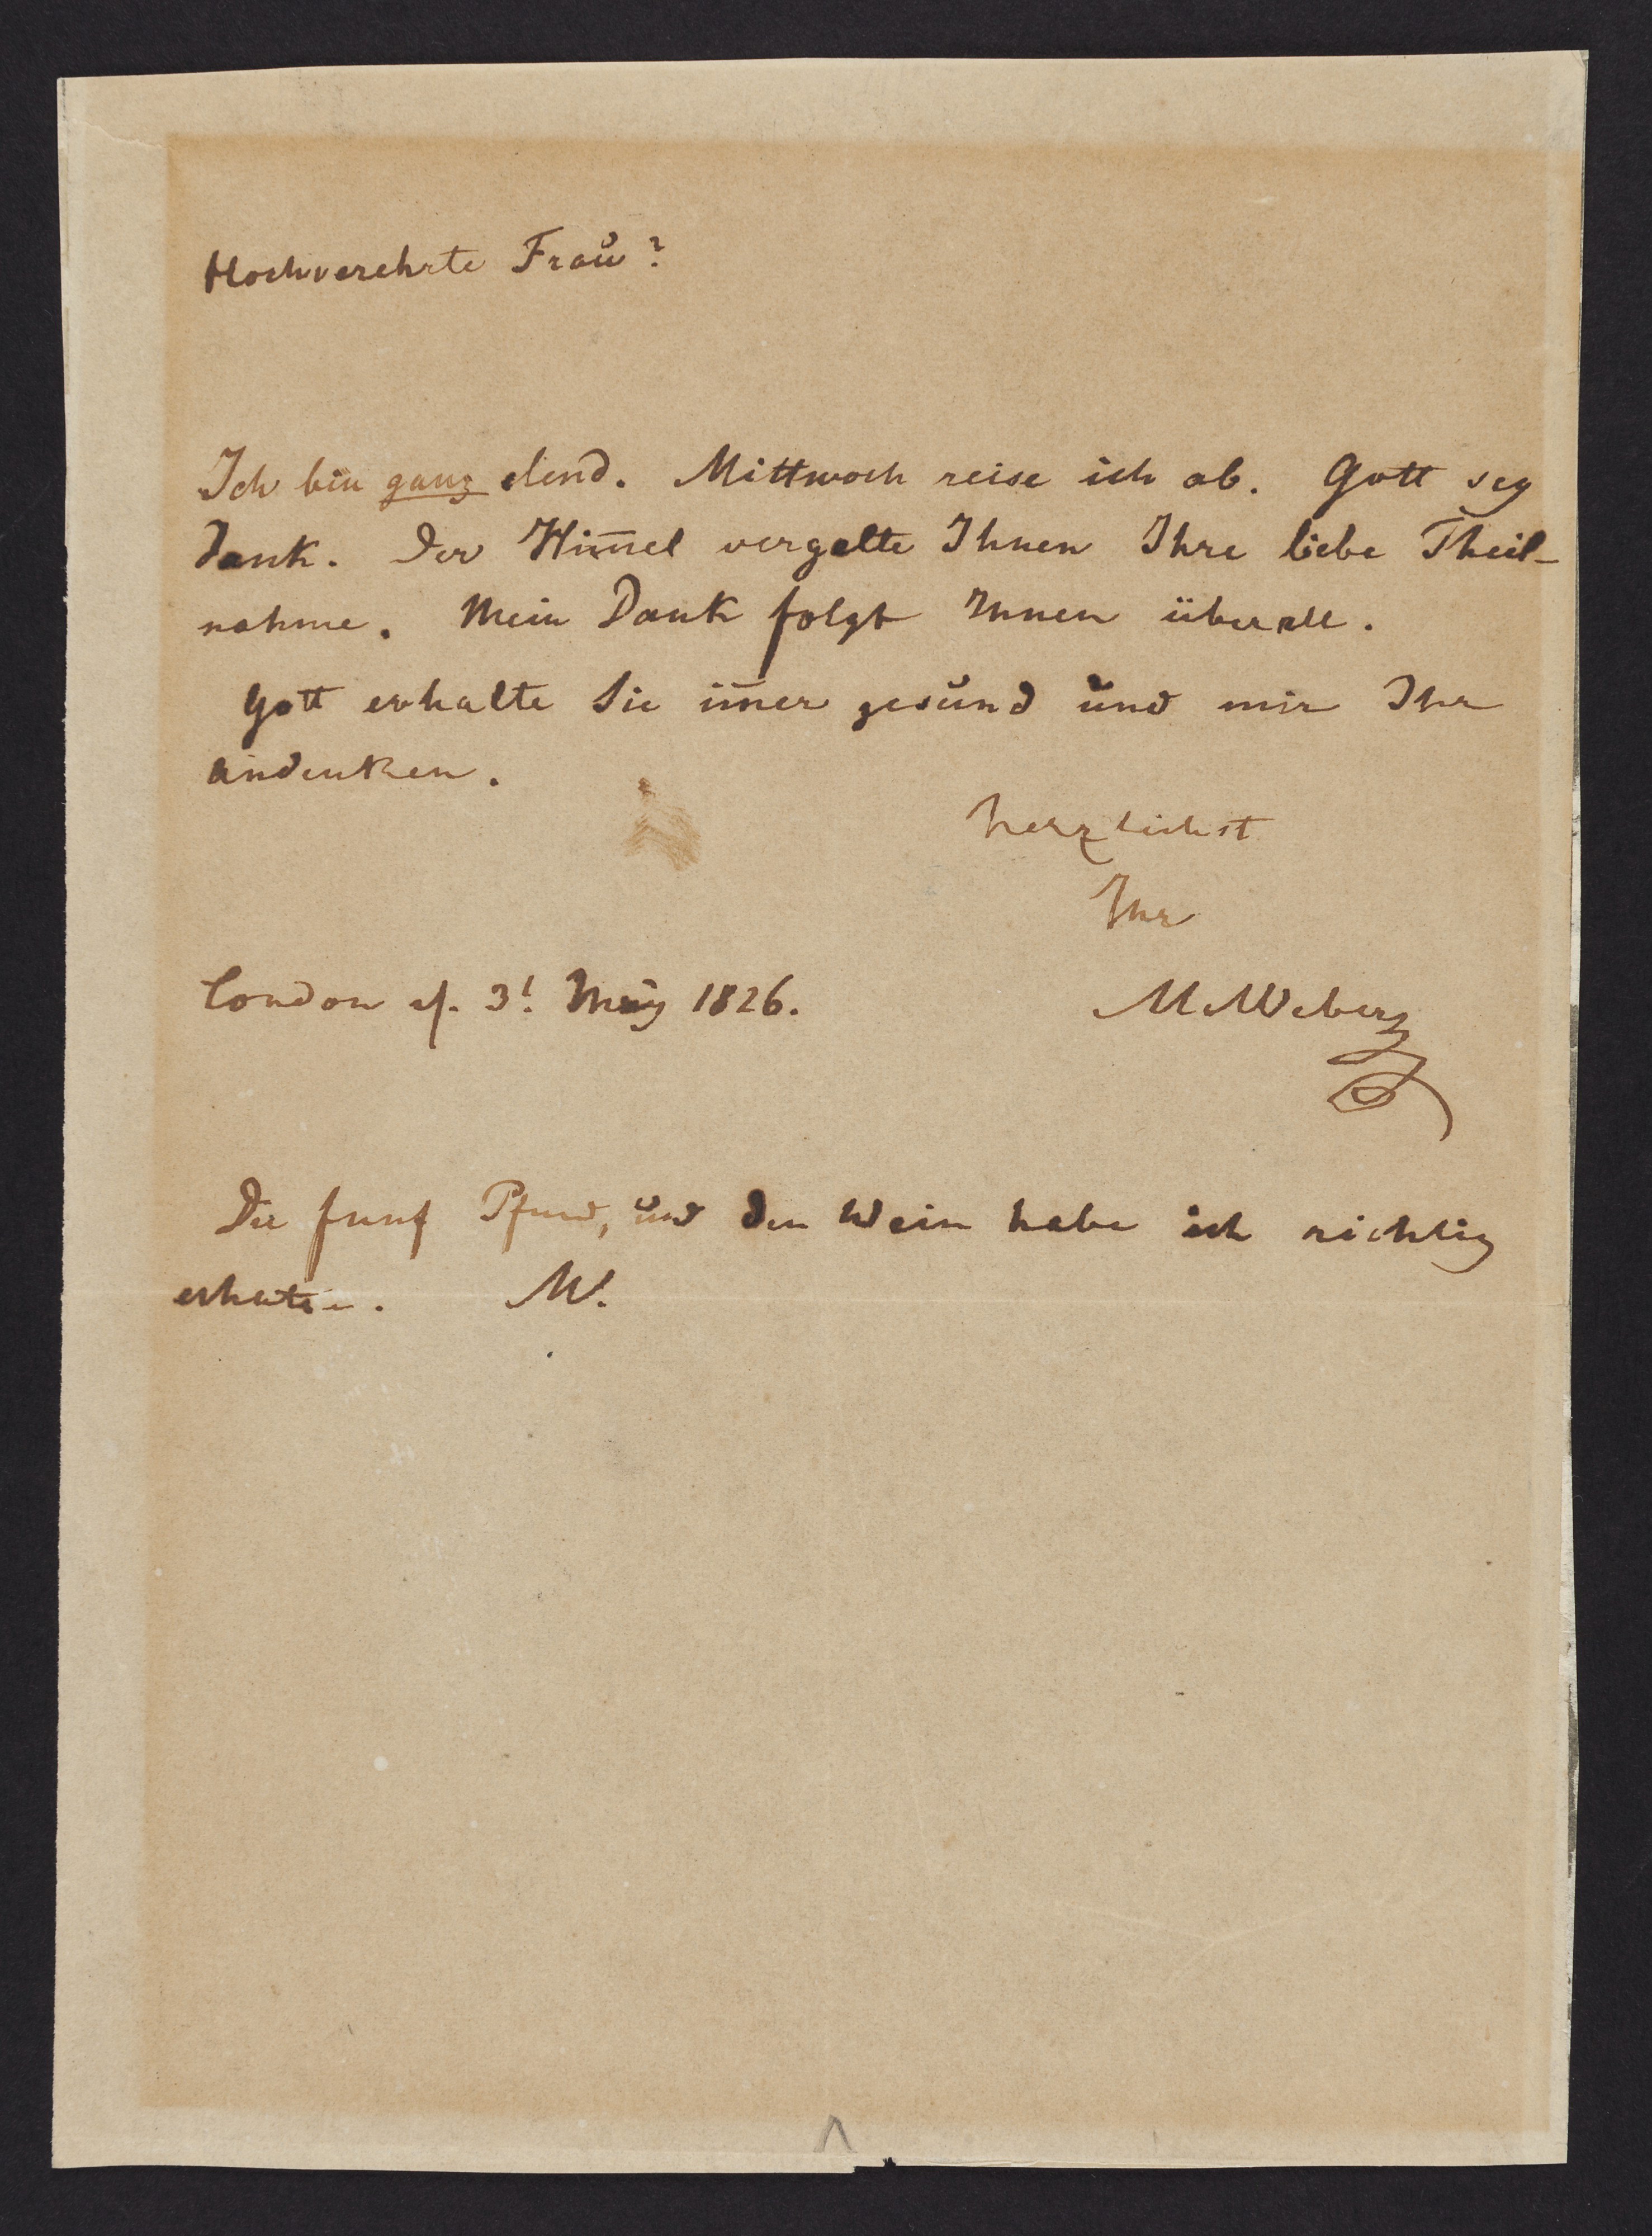 Hochverehrte Frau!
Ich bin ganz elend. Mittwoch reise ich ab. Gott sey
Dank. Der Him̅el vergelte Ihnen Ihre liebe Theil-
nahme. Mein Dank folgt Ihnen überall.
Gott erhalte Sie im̅er gesund und mir Ihr
Andenken.
herzlichst
Ihr
London d. 31 May 1826.
MvWeber
Die funf Pfund, und den Wein habe ich richtig
erhalten. W.